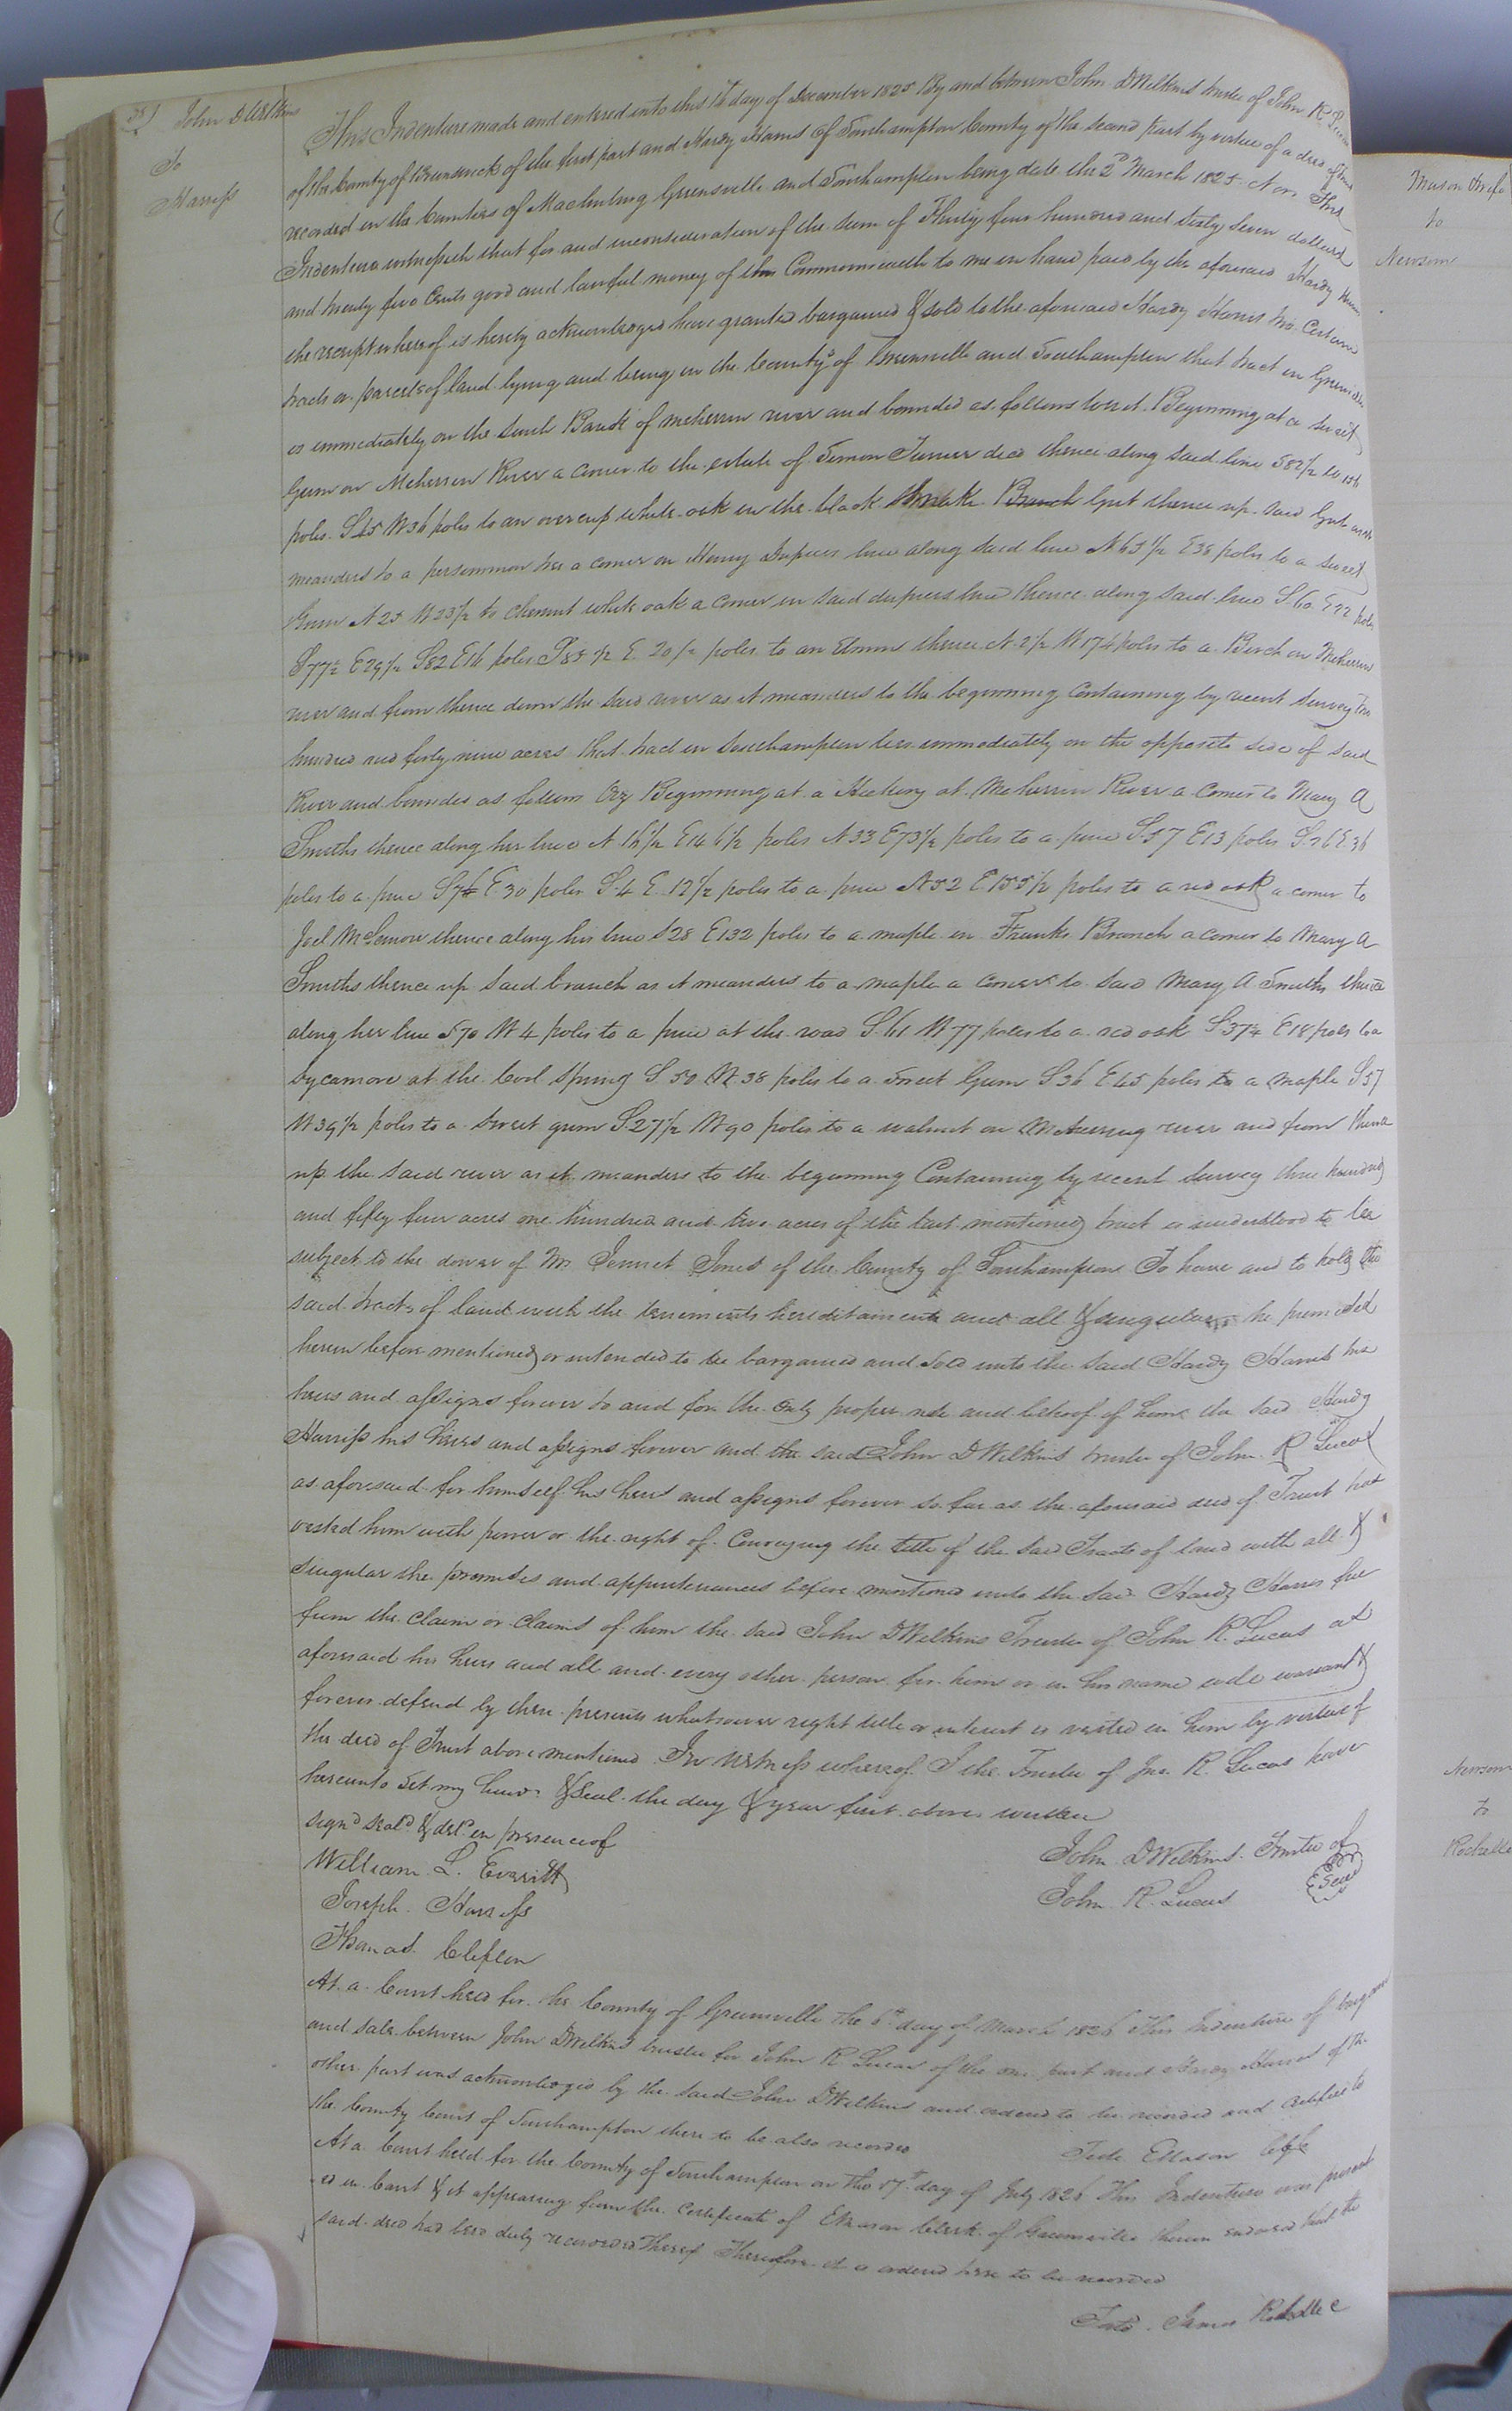 351 John D Wilkins
To
Harriss
This Indenture made and entered into this 1st day of December 1825 By and between John D Wilkins trustee of John R Lucas
of the County of Brunswick of the first part and Hardy Harris of Southampton County of the second part by virtue of a deed of trust
recorded in the Counties of Greensville and Southampton being date the 2d March 1825 Now This
Indenture witnesseth that for and inconsideration of the sum of Thirty four hundred and sixty seven dollars
and twenty five Cents good and lawful money of this Commonwealth to me in hand paid by the aforesaid Hardy Harris
the receipt whereof is hereby acknowledged have granted bargained & sold to the aforesaid Hardy Harris two Certain
tracts or parcels of land lying and being in the County's of Greensville and Southampton that tract in Greensville
is immediately on the South Bank of meherrin river and bounded as follows towit. Beginning at a sweet
Gum on Meherrin River a corner to the estate of Simon Turner decd thence along said line S82½ W
poles S45 W36 poles to an overcup white oak in the black Branch Gut thence up said Gut as it
meanders to a persimmon tree a corner on Henry Duprees line along said line N65½ E38 poles to a sweet
Gum N25 W23½ to chesnut white oak a corner in said duprees line thence along said line S60 E92 poles
S77½ E29½ S82 E16 poles S85½ E 20½ poles to an Elm thence N2½ W174 poles to a Birch on Meherrin
river and from thence down the said river as it meanders to the beginning Containing by recent Survey
hundred and forty nine acres that tract in Southampton lies immediately on the opposite side of said
River and bounded as follows Viz Beginning at a Hickory at Meherrin River a Corner to Mary A
Smiths thence along her line N16½ E146½ poles N33 E73½ poles to a pine S57 E13 poles S76 E36
poles to a pine S76 E30 poles S4 E 12½ poles to a pine N52 E155½ poles to a red oak a corner to
Joel McLemore thence along his line S28 E132 poles to a maple in Franks Branch a corner to Mary A
Smiths thence up said branch as it meanders to a maple a corner to said Mary A Smiths thence
along her line S70 W4 poles to a pine at the road S61 W77 poles to a red oak S37¼ E18 poles to a
Sycamore at the Cool Spring S50 W38 poles to a Sweet Gum S36 E45 poles to a maple S57
W39½ poles to a Sweet gum S27½ W90 poles to a walnut on river and from thence
up the said river as it meanders to the beginning Containing by recent Survey three hundred
and fifty four acres one hundred and two acres of the last mentioned tract is understood to be
subject to the dower of Jones of the County of Southampton To have and to hold the
said tracts of land with the tenements hereditaments and all & singular the premises
herein before mentioned or intended to be bargained and sold unto the said Hardy Harris his
heirs and assigns forever to and for the only proper use and behoof of him the said Hardy
Harriss his heirs and assigns forever and the said John D Wilkins trustee of John R Lucas
as aforesaid for himself his heirs and assigns forever so far as the aforesaid deed of Trust has
vested him with power or the right of Conveying the title of the said Tracts of land with all &
singular the premises and appurtenances before mentioned unto the said Hardy Harris free
from the claim or claims of him the said John D Wilkins Trustee of John R. Lucas as
aforesaid his heirs and all and every other person for him or in his name will warrant &
forever defend by these presents whatsoever right title or interest is vested in him by virtue of
the deed of Trust above mentioned In Witness whereof I the Trustee of Jno R. Lucas have
hereunto set my hand & Seal the day & year first above written
signd seald & deld in presence of
William L. Everitt
Joseph Harriss
Thomas Clifton
John D Wilkins Trustee of
John R. Lucas Seal
At a Court held for the County of Greensville the 6th day of March 1826 This Indenture of bargain
and sale between John D Wilkins trustee for John R Lucas of the one part and Hardy Harris of the
other part was acknowledged by the said John D Wilkins and ordered to be recorded and certified to
the County Court of Southampton there to be also recorded
Teste E Mason Clk
At a Court held for the County of Southampton on the 17th day of July 1826 This Indenture was present
ed in Court & it appearing from the Certificate of E Mason Clerk of Greensville thereon endorsed that the
said deed had been duly recorded Therefore it is ordered here to be recorded
Teste James Rochelle C
Mason
to
Newsom
Newsom
to
Rochelle